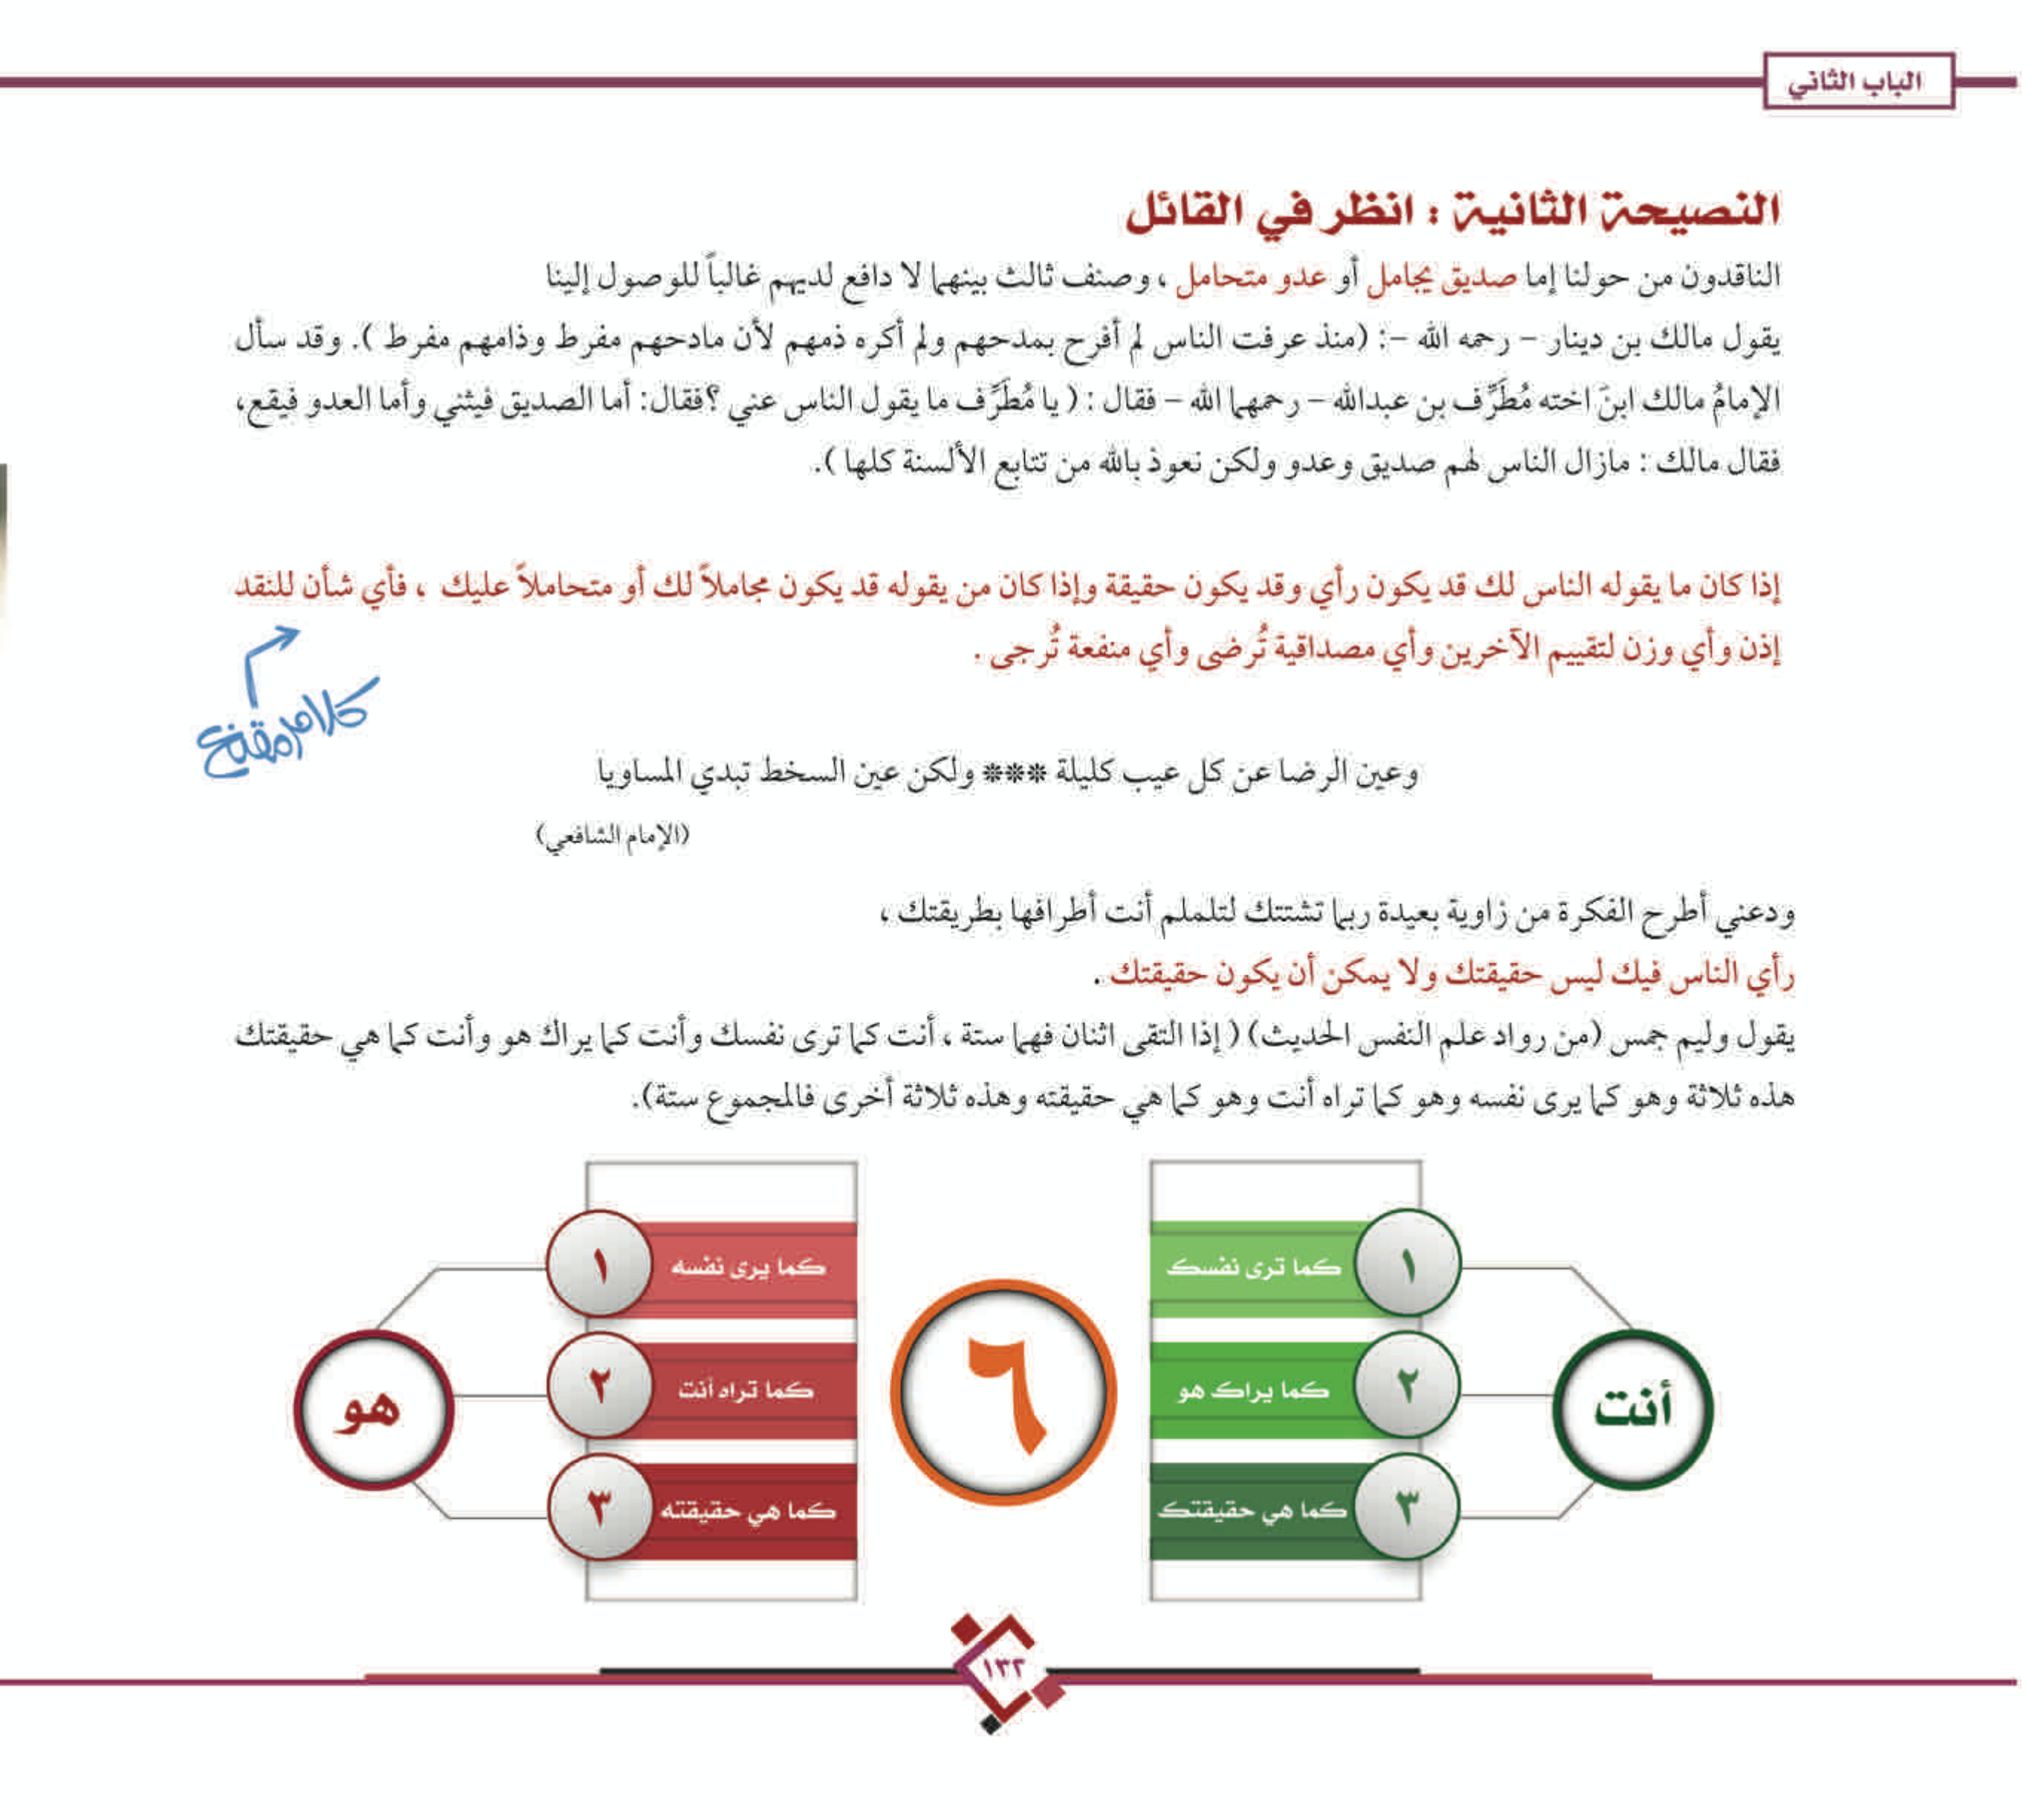 الباب الثاني
النصيحة الثانية : انظر في القائل
الناقدون من حولنا إما صديق يجامل أو عدو متحامل ، وصنف ثالث بينهما لا دافع لديهم غالباً للوصول إلينا
يقول مالك بن دينار – رحمه الله –: (منذ عرفت الناس لم أفرح بمدحهم ولم أكره ذمهم لأن مادحهم مفرط وذامهم مفرط ). وقد سأل
الإمامُ مالك ابنَ اخته مُطَرِّف بن عبدالله – رحمهما الله – فقال : ( يا مُطَرِّف ما يقول الناس عني ؟فقال: أما الصديق فيثني وأما العدو فيقع،
فقال مالك : مازال الناس لهم صديق وعدو ولكن نعوذ بالله من تتابع الألسنة كلها ).
إذا كان ما يقوله الناس لك قد يكون رأي وقد يكون حقيقة وإذا كان من يقوله قد يكون مجاملاً لك أو متحاملاً عليك ، فأي شأن للنقد
إذن وأي وزن لتقييم الآخرين وأي مصداقية تُرضى وأي منفعة تُرجى .
كلام مقنع
وعين الرضا عن كل عيب كليلة *** ولكن عين السخط تبدي المساويا
(الإمام الشافعي)
ودعني أطرح الفكرة من زاوية بعيدة ربما تشتتك لتلملم أنت أطرافها بطريقتك ،
رأي الناس فيك ليس حقيقتك ولا يمكن أن يكون حقيقتك .
يقول وليم جمس (من رواد علم النفس الحديث) ( إذا التقى اثنان فهما ستة ، أنت كما ترى نفسك وأنت كما يراك هو وأنت كما هي حقيقتك
هذه ثلاثة وهو كما يرى نفسه وهو كما تراه أنت وهو كما هي حقيقته وهذه ثلاثة أخرى فالمجموع ستة).
أنت
١ كما ترى نفسك
٢ كما يراك هو
٣ كما هي حقيقتك
٦
كما يرى نفسه ١
كما تراه أنت ٢
كما هي حقيقته ٣
هو
١٣٢